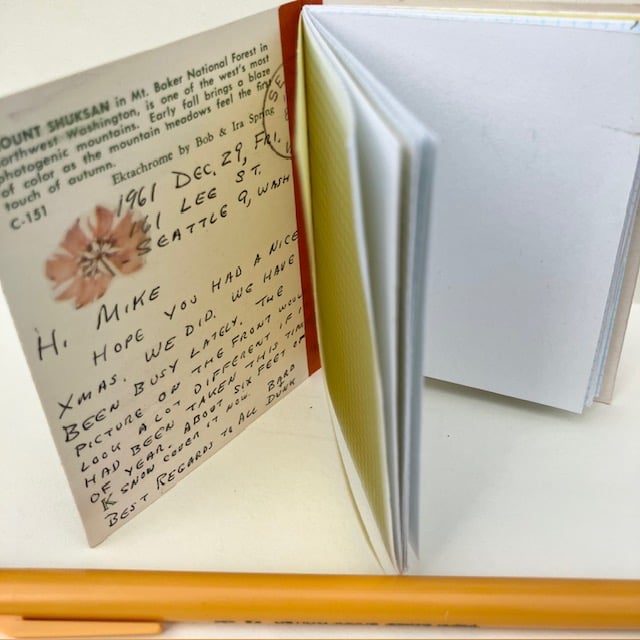 OUNT SHUKSAN in Mt. Baker National Forest in
orthwest Washington, is one of the west's most
hotogenic mountains. Early fall brings a blaze
of color as the mountain meadows feel the first
touch of autumn.
C-151
Ektachrome by Bob & Ira Spring
SE
1961 DEC. 29, FRI.
161 LEE ST.
SEATTLE 9, WASH
HI MIKE
HOPE YOU HAD A NICE
XMAS. WE DID. WE HAVE
BEEN BUSY LATELY. THE
PICTURE ON THE FRONT WOUL
LOOK A LOT DIFFERENT IF I
HAD BEEN TAKEN THIS TIME
OF YEAR. ABOUT SIX FEET OF
SNOW COVER IT NOW.
BEST REGARDS TO ALL